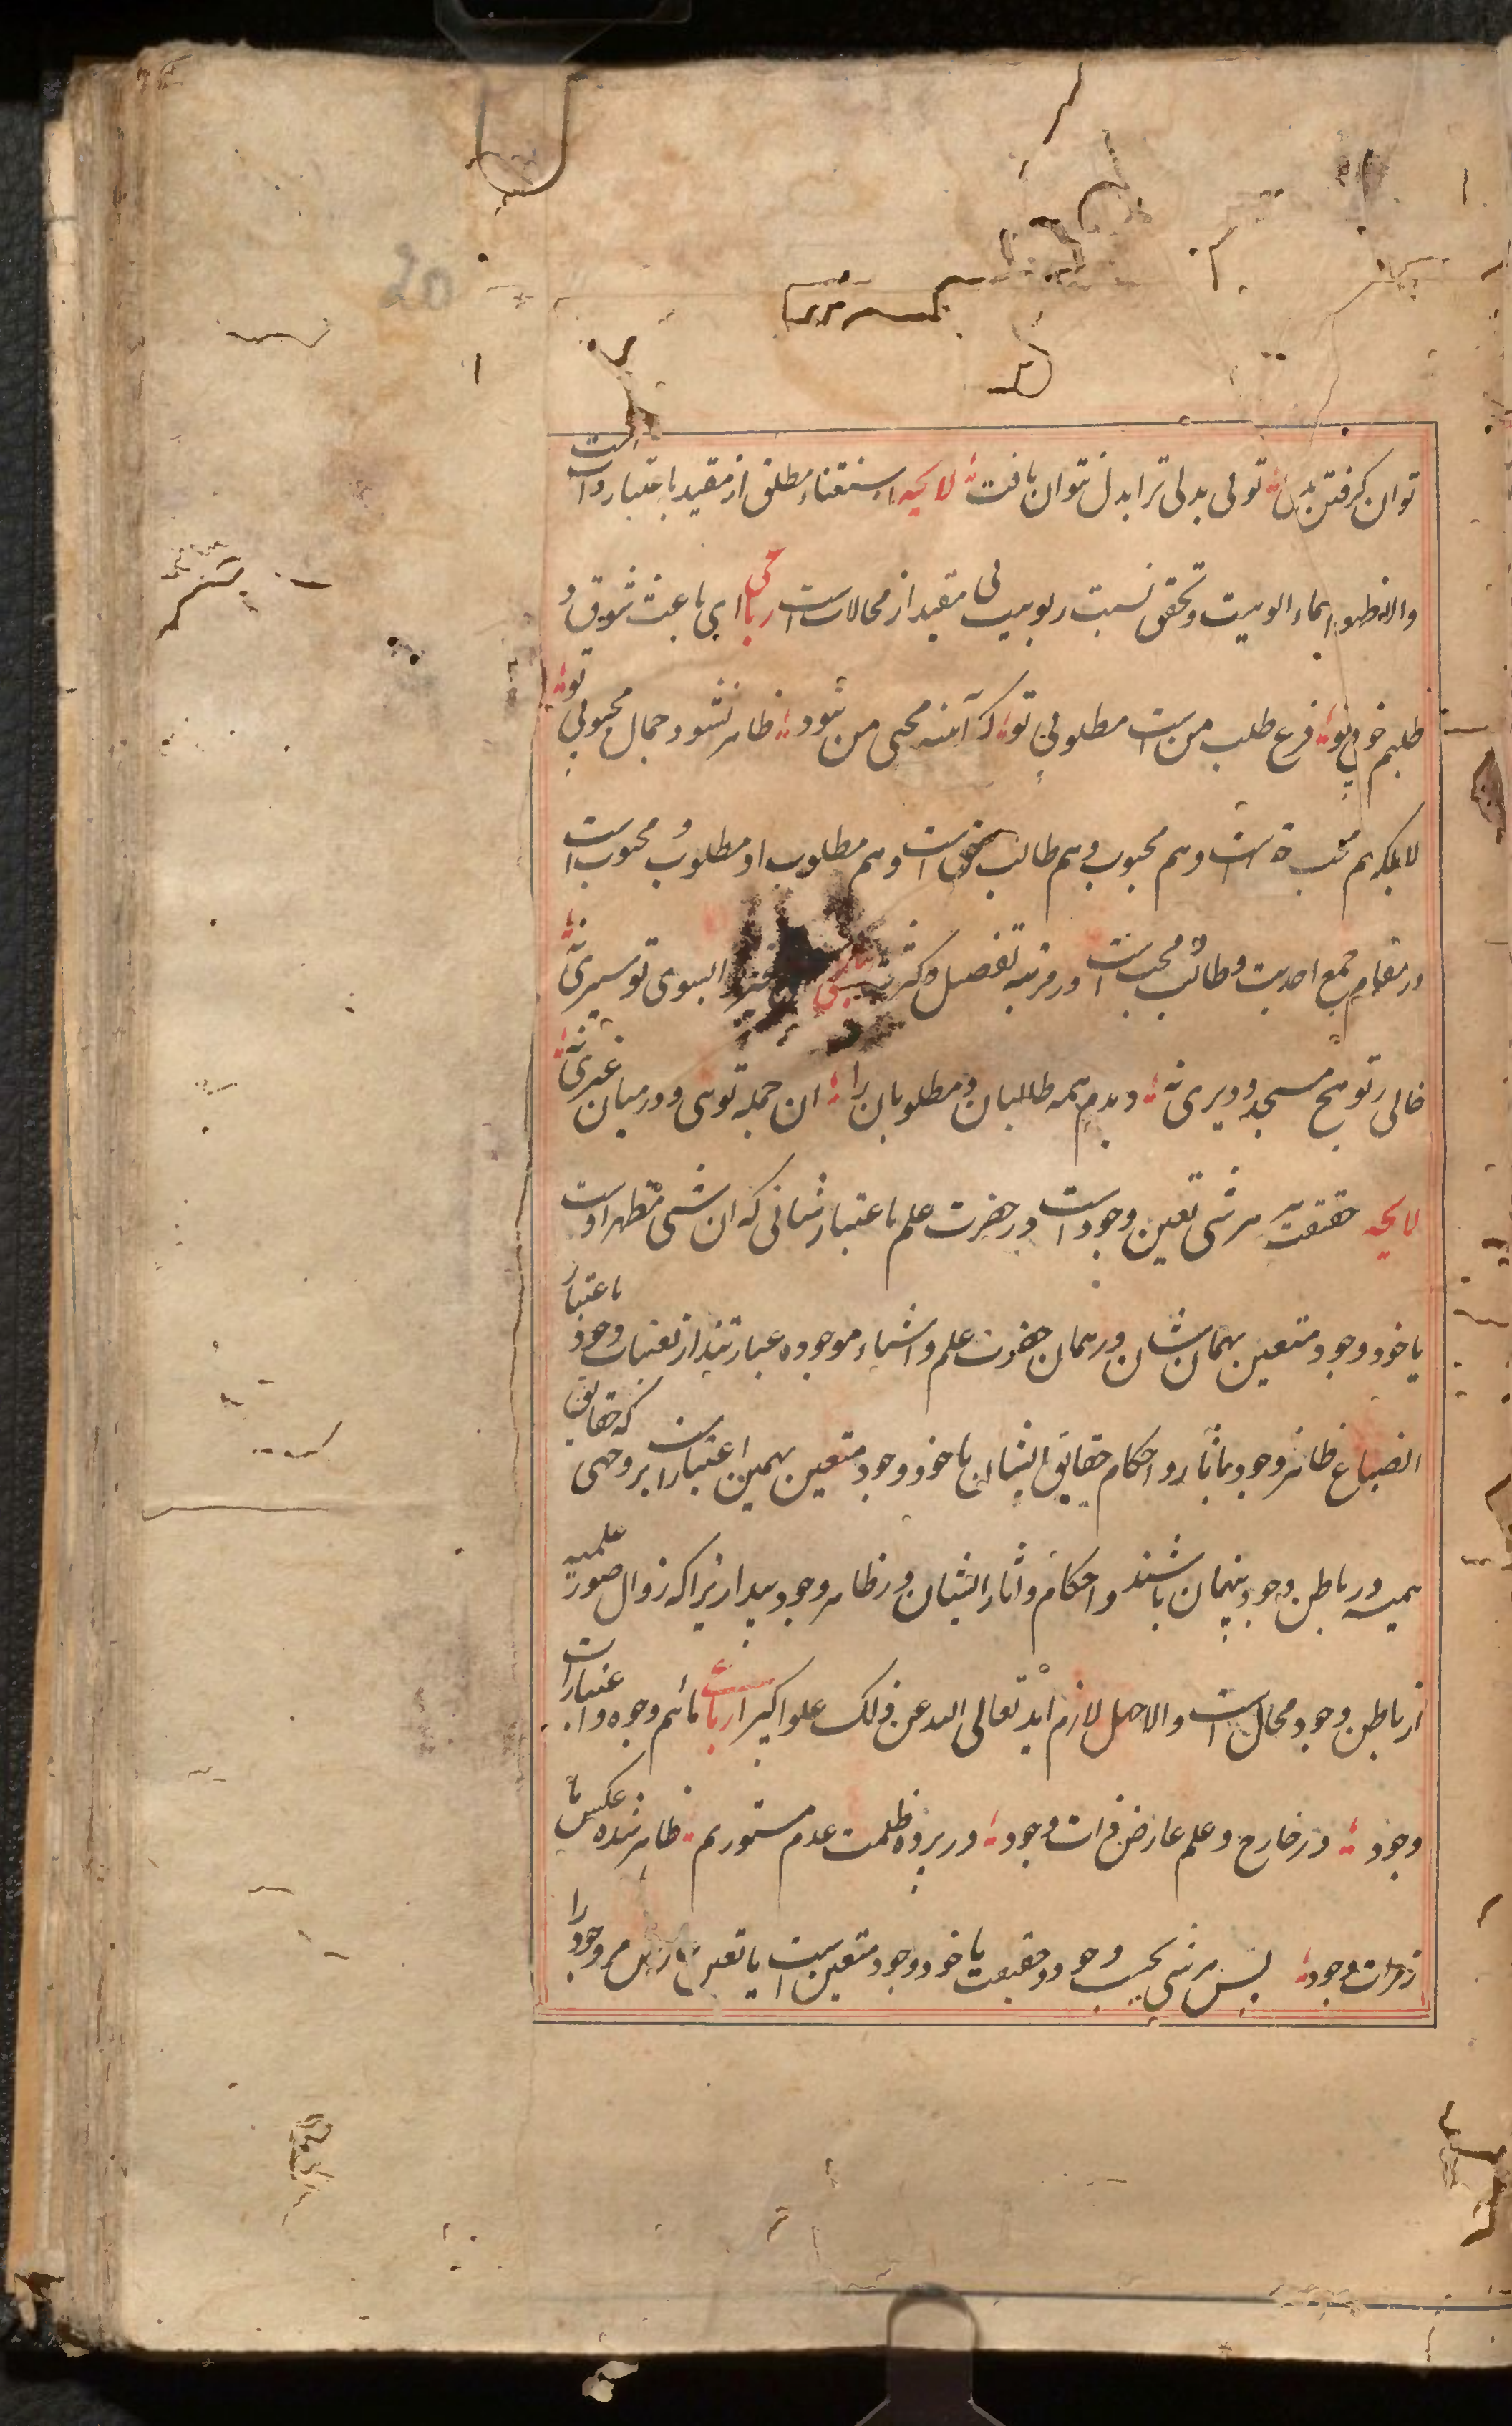 20
توان کرفتن بدلی تو لی بدلی ترا بدل نتوان یافت لایحه استغناء مطلق از مقید باعتبار ذات است
والا ظهور اسماء الوهیت و تحقق نسبت ربوبیت بی مقید از محالات است رباعی ای باعث شوق و
طلبم خوبی تو فرع طلب من است مطلوبی تو کر آینه محبی من نبود ظاهر نشود جمال محبوبی تو
لا بلکه هم محب حق است و هم محبوب و هم طالب حق است و هم مطلوب او مطلوب و محبوب است
در مقام جمع احدیت و طالب و محب است در مرتبه تفصیل و کثرت رباعی بسوی تو سیری نه
خالی ز تو هیچ مسجد و دیری نه دیدم همه طالبان و مطلوبان را ان جمله توئی و در میان غیری نه
لایحه حقیقت هر شی تعین وجود است در حضرت علم باعتبار شانی که ان شی مظهر اوست
یا خود وجود متعین بهمان شان در همان حضرت علم و اشیاء موجوده عبارتند از تعینات وجود باعتبار
انصباغ ظاهر وجود بآثار و احکام حقایق ایشان یا خود وجود متعین بهمین اعتبارات بر وجهی که حقایق
همیشه در باطن وجود پنهان باشند و احکام و اثار ایشان در ظاهر وجود پیدا زیرا که زوال صور علمیه
از باطن وجود محال است والا جهل لازم اید تعالی الله عن ذلک علوا کبیرا رباعی مائیم وجوه و اعتبارات
وجود در خارج و علم عارض ذات وجود در پرده ظلمت عدم مستوریم ظاهر شده عکس ما
ز مرات وجود پس هر شی بحسب وجود و حقیقت یا خود وجود متعین است یا تعین عارض مر وجود را